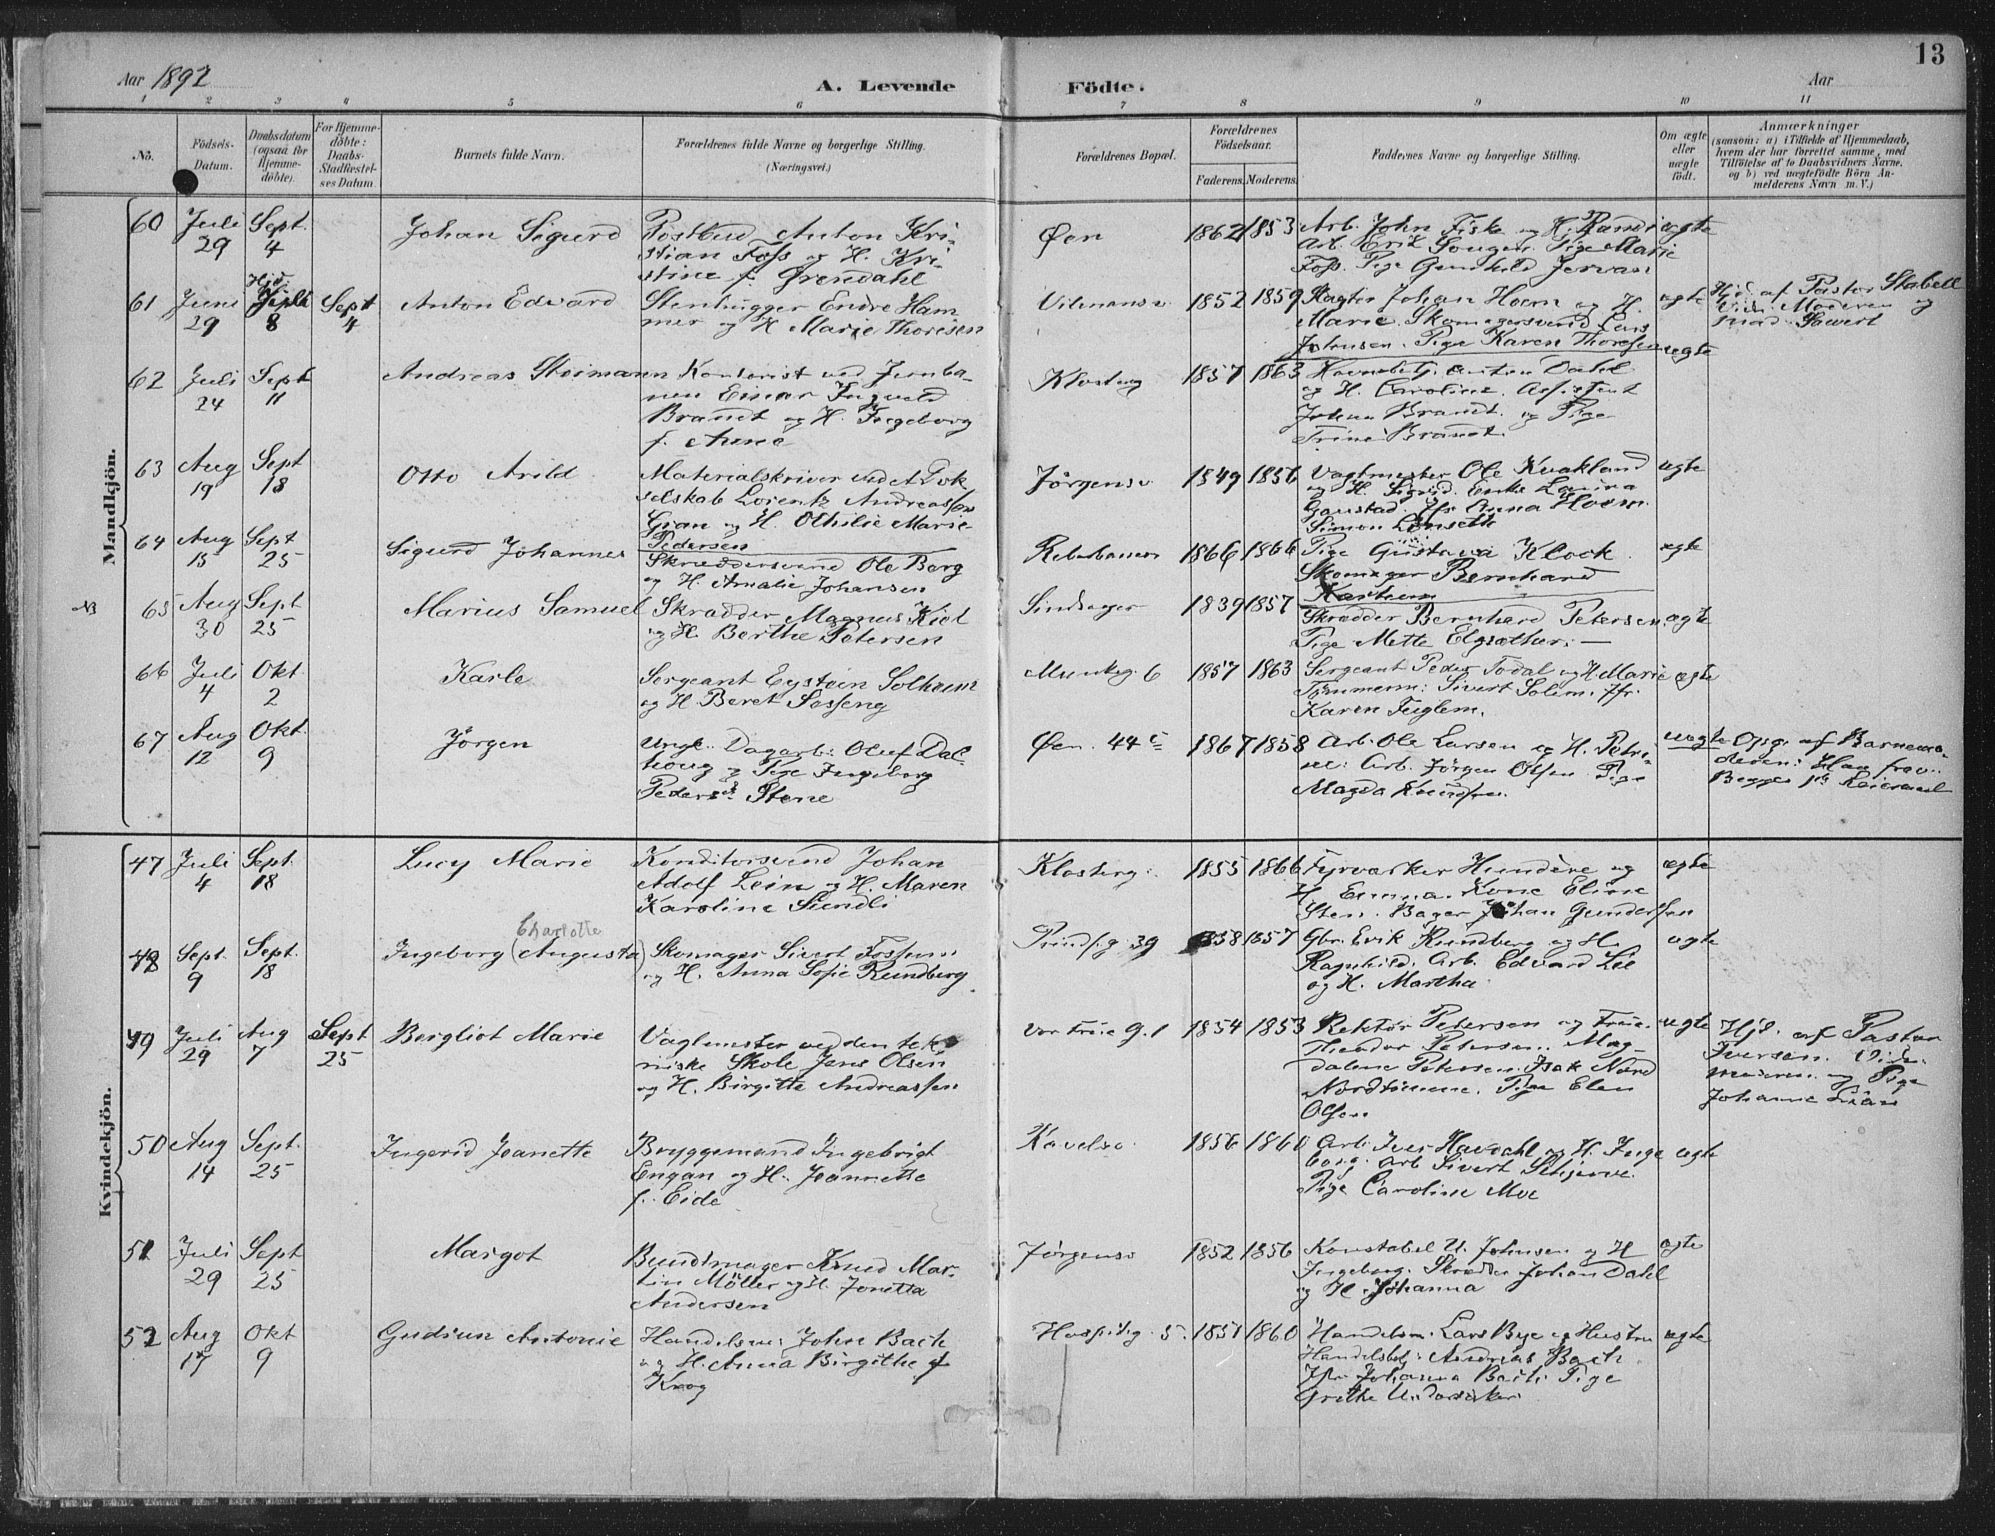 13
Aar 1892
A. Levende Födte.
Aar
1 2 3 4 5 6 7 8 9 10 11
No.
Födsels-
Datum.
Daabsdatum
(ogsaa for
Hjemme-
döbte).
For Hjemme-
döbte:
Daabs-
Stadfæstel-
ses Datum.
Barnets fulde Navn.
Forældrenes fulde Navne og borgerlige Stilling.
(Næringsvei.)
Forældrenes Bopæl.
Forældrenes
Födselsaar.
Faderens. Moderens.
Faddernes Navne og borgerlige Stilling.
Om ægte
eller
uægte
födt.
Anmærkninger
(saasom: a) i Tilfælde af Hjemmedaab,
hvem der har forrettet samme, med
Tilföielse af to Daabsvidners Navne,
og b) ved uægtefödte Börn An-
melderens Navn m. V.)
Mandkjön.
60 Juli 29 Sept. 4 Johan Sigurd
Postbud Anton Kri-
stian Foss og H. Kri-
stine f. Ørendahl
Øen 1862 1853
Arb. John Fiske og H. Randi
Arb. Erik Pige Marie
Foss. Pige Gunhild
ægte
61 Juni 29 Hjd. Juli 8 Sept 4 Anton Edvard
Stenhugger Endre Ham
mer og H. Marie Thoresen
1852 1859
Johan Hoem og H.
Marie. Skomagersvend Lars
Johnsen. Pige Karen Thoresen
ægte
Hjd. af Pastor Stabell
Vid. Moderen og
Mad. Sivert
62 Juli 24 Sept 11 Andreas Steimann
Kontorist ved Jernba-
nen Einar Ingvald
Brandt og H. Ingeborg
f. Aune
Klosterg 1857 1863
Dahl
og H. Caroline. Assistent
Johan Brandt. og Pige
Trine Brandt.
ægte
63 Aug 19 Sept 18 Otto Arild
Materialskriver ved A Dok
selskab Lorentz Andreassen
Gran og H. Othilie Marie
Pedersen
Jörgensv 1849 1856
Vagtmester Ole Kvakland
og H. Sigrid. Enke Lovina
Gaustad. Jfr Anna Hoem.
Simon Lönseth
ægte
64 Aug 15 Sept 25 Sigurd Johannes
Skræddersvend Ole Berg
og H. Amalie Johansen
1866 1866
Pige Gustava Klock.
Skomager Bernhard
Karlsen
ægte
NB 65 Aug 30 Sept 25 Marius Samuel
Skrædder Magnus Kiel
og H. Berthe Petersen
1839 1857
Skrædder Bernhard Petersen
Pige Mette Elgsæther. —
ægte
66 Juli 4 Okt 2 Karle
Sergeant Eystein Solheim
og H Beret Sosseng
Munkeg. 6 1857 1863
Sergeant Peder Todal og H. Marie
Sivert Solem. Jfr.
Karen Fuglem.
ægte
67 Aug 12 Okt. 9 Jörgen
Ungk. Dagarb. Oluf Dal-
houg og Pige Ingeborg
Pedersd. Stene
Øen. 44 c 1867 1858
Arb. Ole Larsen og H. Petri-
ne. Arb. Jörgen Olsen Pige
Magda Knudsen.
uægte
Opg. af Barnemo-
deren: Han frav..
Begges 1ste Leiermaal
Kvindekjön.
47 Juli 4 Sept. 18 Lucy Marie
Konditorsvend Johan
Adolf Lein og H. Maren
Karoline Sundli
Klosterg. 1855 1866
Fyrværker Hundere og
H. Emma. Kone Eline
Sten. Bager Johan Gundersen
ægte
48 Sept. 9 Sept. 18 Charlotte
Ingeborg (Augusta)
Skomager Sivert Fossum
og H. Anna Sofie Rundberg
Prindsg. 39 1858 1857
Gbr. Erik Rundberg og H.
Ragnhild. Arb. Edvard Lie
og H. Martha
ægte
49 Juli 29 Aug 7 Sept 25 Bergliot Marie
Vagtmester ved den tek
niske Skole Jens Olsen
og H. Birgitte Andreassen
Vor Frue G. 1 1854 1853
Rektor Petersen og Frue.
Theodor Petersen. Mag-
dalene Petersen. Isak Nord
Pige Elen
Olsen
ægte
Hjd. af Pastor
Iversen. Vid.
Moderen og Pige
Johanne
50 Aug 14 Sept. 25 Ingerid Jeanette
Bryggemand Ingebrigt
Engan og H. Jeannette
f. Eide
1856 1860
Arb. Iver Havdahl og H. Inge
borg. Arb Sivert Schjerve.
Pige Caroline Moe
ægte
51 Juli 29 Sept 25 Margot
Bundtmager Knud Mar-
tin Möller og H. Jonetta
Andersen
Jörgensv 1852 1856
Konstabel U. Johnsen og H
Ingeborg. Skrædder Johan Dahl
og H. Johanna
ægte
52 Aug 17 Okt 9 Gudrun Antonie
Handelsm. John Bach
og H. Anna Birgithe f
Krog
Hospitlg. 5. 1851 1860
Handelsm. Lars Bye og Hustru
Handelsbetj. Andreas Bach
Jfr. Johanna Bach. Pige
Grethe
ægte